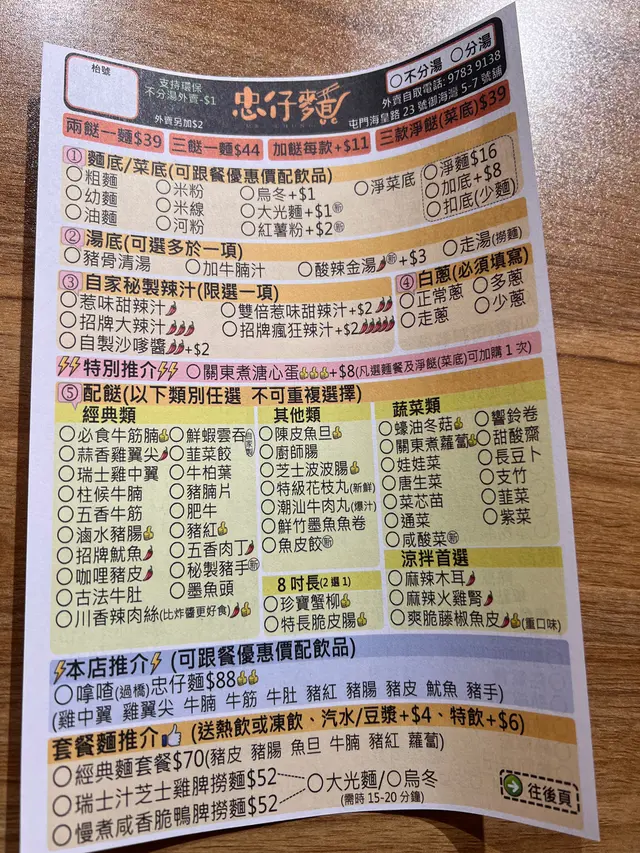 枱號
支持環保
不分湯外賣-$1
外賣另加$2
忠仔麵
○不分湯 ○分湯
外賣自取電話: 9783 9138
屯門海皇路 23 號御海灣 5-7 號舖
兩餸一麵$39 三餸一麵$44 加餸每款+$11 三款淨餸(菜底)$39
① 麵底/菜底(可跟餐優惠價配飲品)
○粗麵 ○米粉 ○烏冬+$1 ○淨菜底 ○淨麵$16
○幼麵 ○米線 ○大光麵+$1新 ○加底+$8
○油麵 ○河粉 ○紅薯粉+$2新 ○扣底(少麵)
② 湯底(可選多於一項)
○豬骨清湯 ○加牛腩汁 ○酸辣金湯新+$3 ○走湯(撈麵)
③ 自家秘製辣汁(限選一項)
○惹味甜辣汁 ○雙倍惹味甜辣汁+$2
○招牌大辣汁 ○招牌瘋狂辣汁+$2
○自製沙嗲醬+$2
④ 白蔥(必須填寫)
○正常蔥 ○多蔥
○走蔥 ○少蔥
特別推介 ○關東煮溏心蛋+$8(凡選麵餐及淨餸(菜底)可加購 1 次)
⑤ 配餸(以下類別任選 不可重複選擇)
經典類
○必食牛筋腩 ○鮮蝦雲吞
○蒜香雞翼尖 ○韮菜餃
○瑞士雞中翼 ○牛柏葉
○柱侯牛腩 ○豬腩片
○五香牛筋 ○肥牛
○滷水豬腸 ○豬紅
○招牌魷魚 ○五香肉丁
○咖哩豬皮 ○秘製豬手新
○古法牛肚 ○墨魚頭
○川香辣肉絲(比炸醬更好食)
其他類
○陳皮魚旦
○廚師腸
○芝士波波腸
○特級花枝丸(新鮮)
○潮汕牛肉丸(爆汁)
○鮮竹墨魚魚卷
○魚皮餃新
8 吋長(2 選 1)
○珍寶蟹柳
○特長脆皮腸
蔬菜類
○蠔油冬菇 ○響鈴卷
○關東煮蘿蔔 ○甜酸齋
○娃娃菜 ○長豆卜
○唐生菜 ○支竹
○菜芯苗 ○韮菜
○通菜 ○紫菜
○咸酸菜新
涼拌首選
○麻辣木耳
○麻辣火雞腎
○爽脆藤椒魚皮(重口味)
本店推介 (可跟餐優惠價配飲品)
○嗱喳(過橋)忠仔麵$88
(雞中翼 雞翼尖 牛腩 牛筋 牛肚 豬紅 豬腸 豬皮 魷魚 豬手)
套餐麵推介 (送熱飲或凍飲、汽水/豆漿+$4、特飲+$6)
○經典麵套餐$70(豬皮 豬腸 魚旦 牛腩 豬紅 蘿蔔)
○瑞士汁芝士雞脾撈麵$52
○慢煮咸香脆鴨脾撈麵$52
○大光麵/○烏冬
(需時 15-20 分鐘)
往後頁